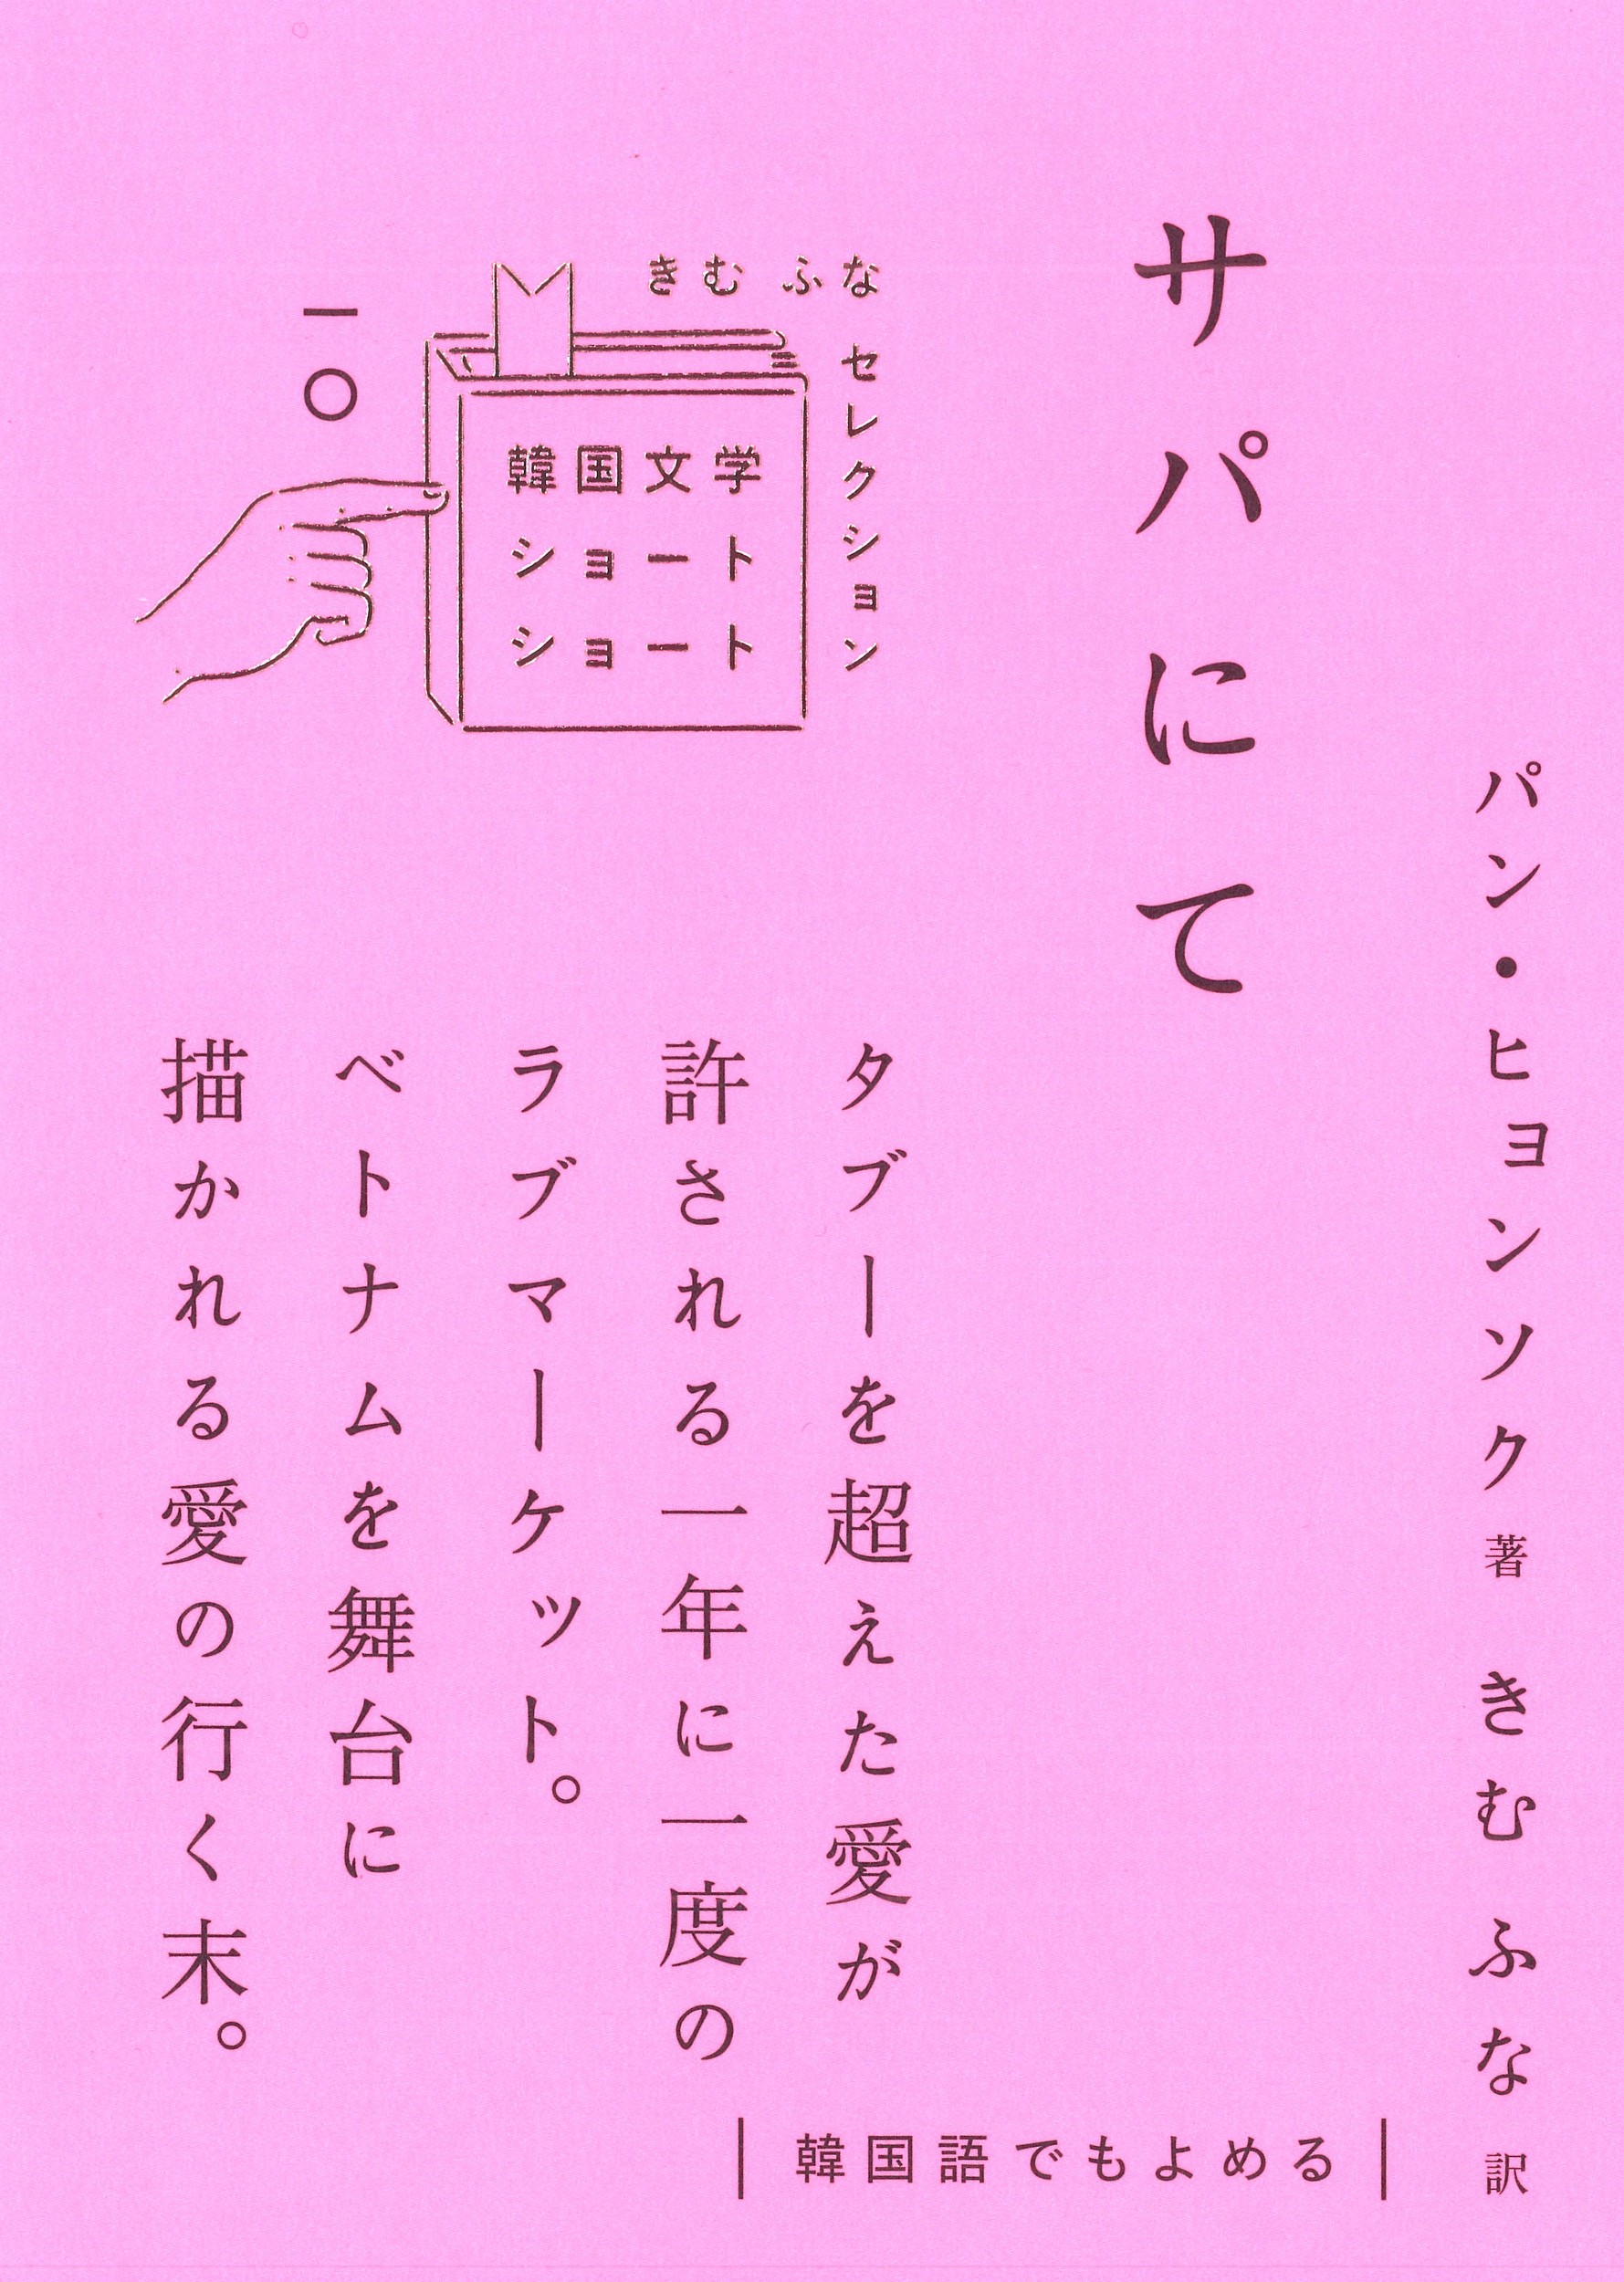 パン・ヒョンソク 著 きむ ふな 訳
サパにて
きむ ふな
セレクション
韓国文学
ショート
ショート
一〇
タブーを超えた愛が
許される一年に一度の
ラブマーケット。
ベトナムを舞台に
描かれる愛の行く末。
韓国語でもよめる